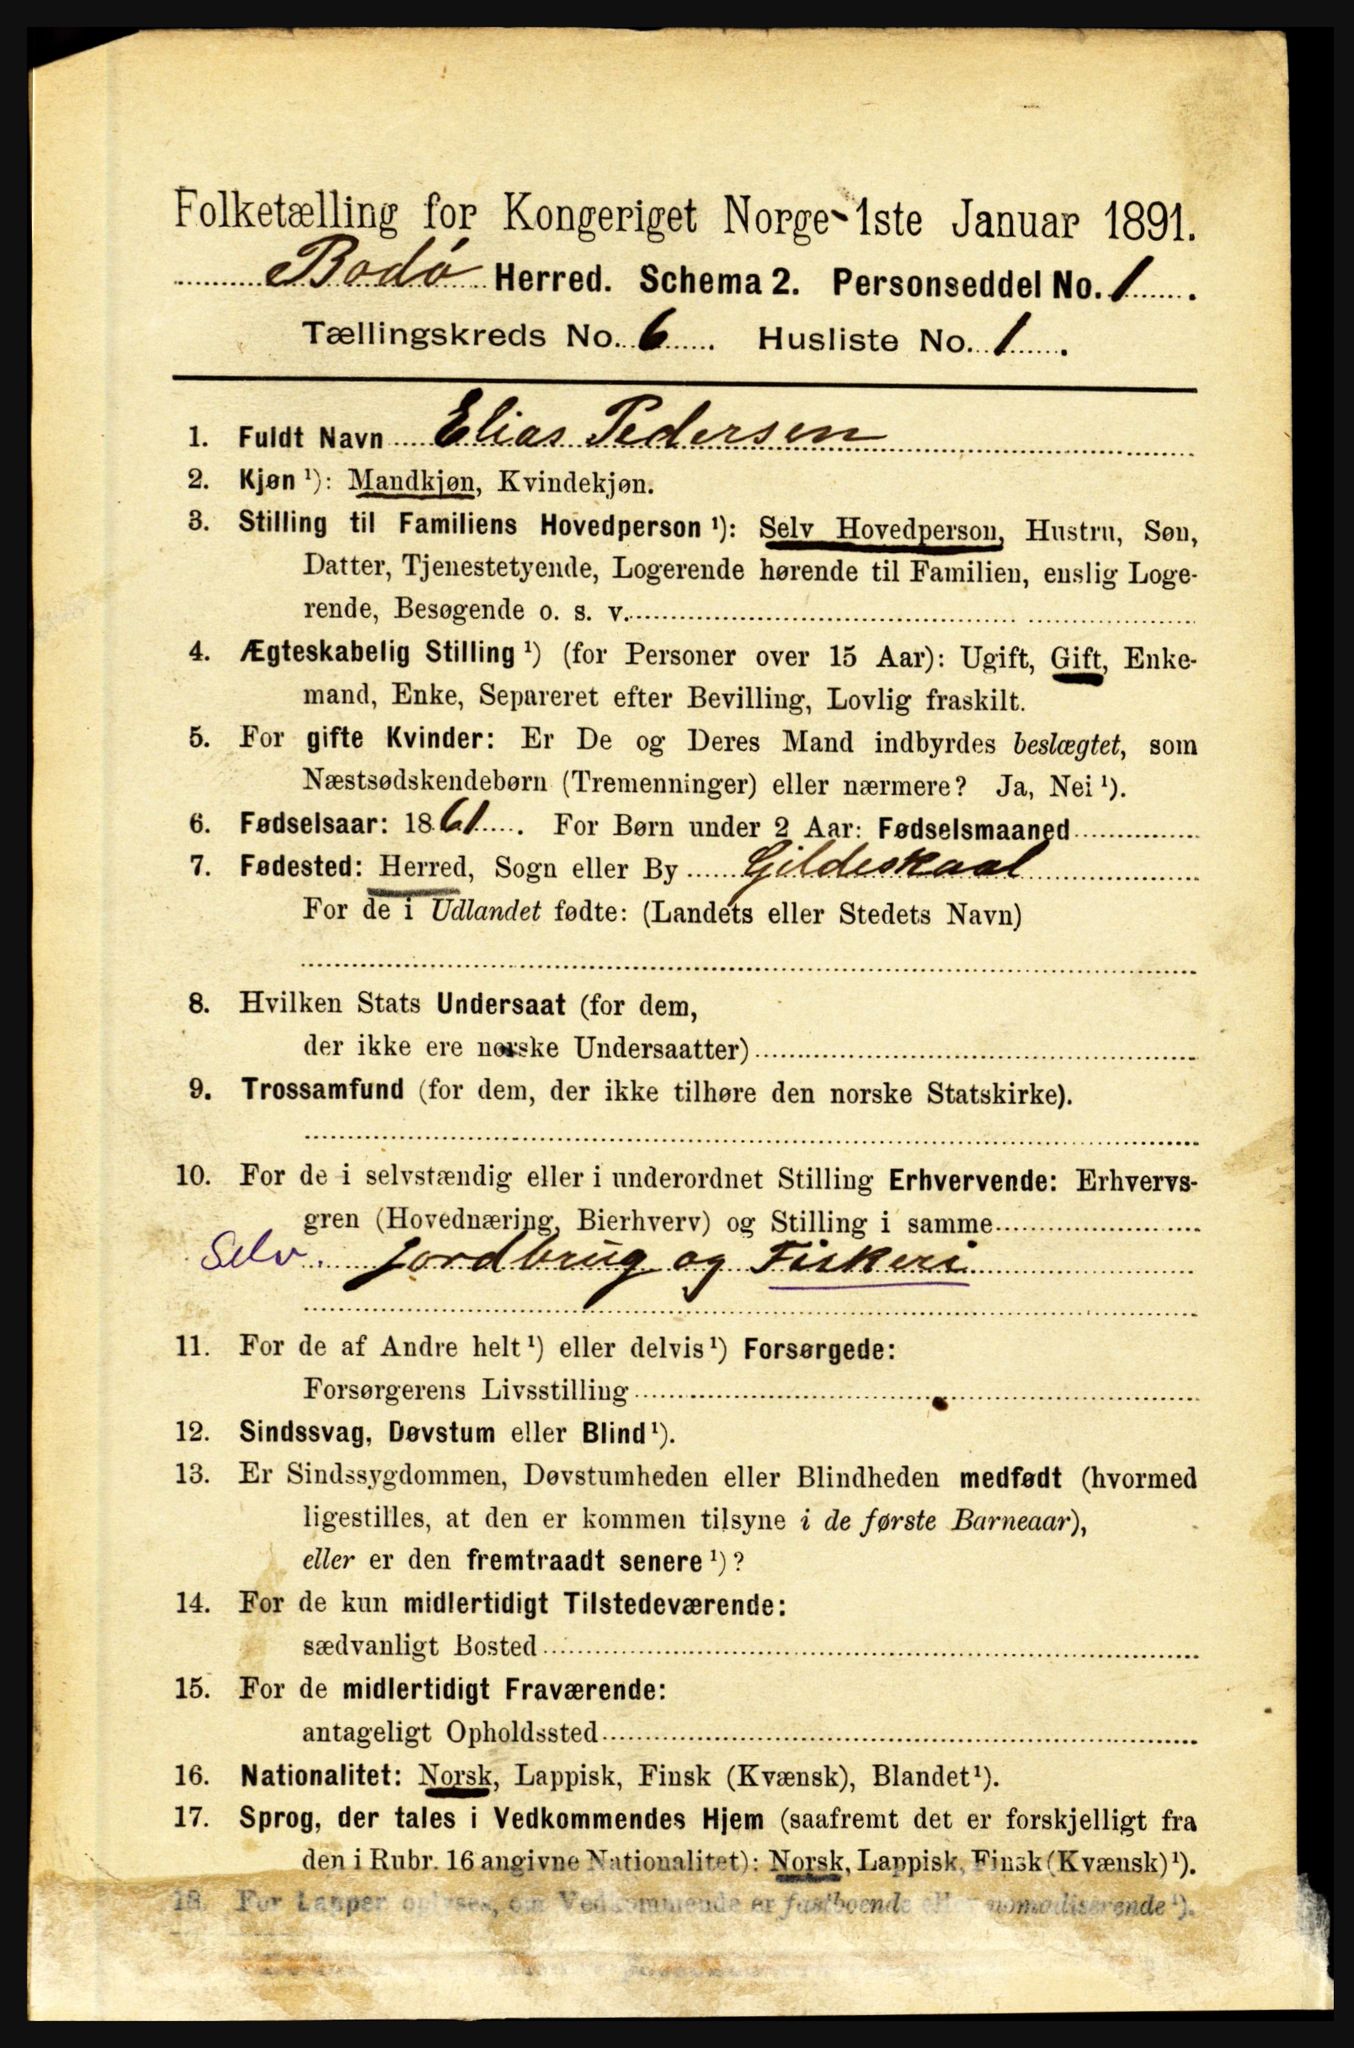 Folketælling for Kongeriget Norge 1ste Januar 1891.
Bodø Herred. Schema 2. Personseddel No. 1.
Tællingskreds No. 6. Husliste No. 1.
1. Fuldt Navn Elias Pedersen
2. Kjøn ¹): Mandkjøn, Kvindekjøn.
3. Stilling til Familiens Hovedperson ¹): Selv Hovedperson, Hustru, Søn,
Datter, Tjenestetyende, Logerende hørende til Familien, enslig Loge-
rende, Besøgende o. s. v.
4. Ægteskabelig Stilling ¹) (for Personer over 15 Aar): Ugift, Gift, Enke-
mand, Enke, Separeret efter Bevilling, Lovlig fraskilt.
5. For gifte Kvinder: Er De og Deres Mand indbyrdes beslægtet, som
Næstsødskendebørn (Tremenninger) eller nærmere? Ja, Nei ¹).
6. Fødselsaar: 1861. For Børn under 2 Aar: Fødselsmaaned
7. Fødested: Herred, Sogn eller By Gildeskaal
For de i Udlandet fødte: (Landets eller Stedets Navn)
8. Hvilken Stats Undersaat (for dem,
der ikke ere norske Undersaatter)
9. Trossamfund (for dem, der ikke tilhøre den norske Statskirke).
10. For de i selvstændig eller i underordnet Stilling Erhvervende: Erhvervs-
gren (Hovednæring, Bierhverv) og Stilling i samme
Selv. Jordbrug og Fiskeri
11. For de af Andre helt ¹) eller delvis ¹) Forsørgede:
Forsørgerens Livsstilling
12. Sindssvag, Døvstum eller Blind ¹).
13. Er Sindssygdommen, Døvstumheden eller Blindheden medfødt (hvormed
ligestilles, at den er kommen tilsyne i de første Barneaar),
eller er den fremtraadt senere ¹)?
14. For de kun midlertidigt Tilstedeværende:
sædvanligt Bosted
15. For de midlertidigt Fraværende:
antageligt Opholdssted
16. Nationalitet: Norsk, Lappisk, Finsk (Kvænsk), Blandet ¹).
17. Sprog, der tales i Vedkommendes Hjem (saafremt det er forskjelligt fra
den i Rubr. 16 angivne Nationalitet): Norsk, Lappisk, Finsk (Kvænsk) ¹).
18. For Lapper oplyses, om Vedkommende er fastboende eller nomadiserende ¹).